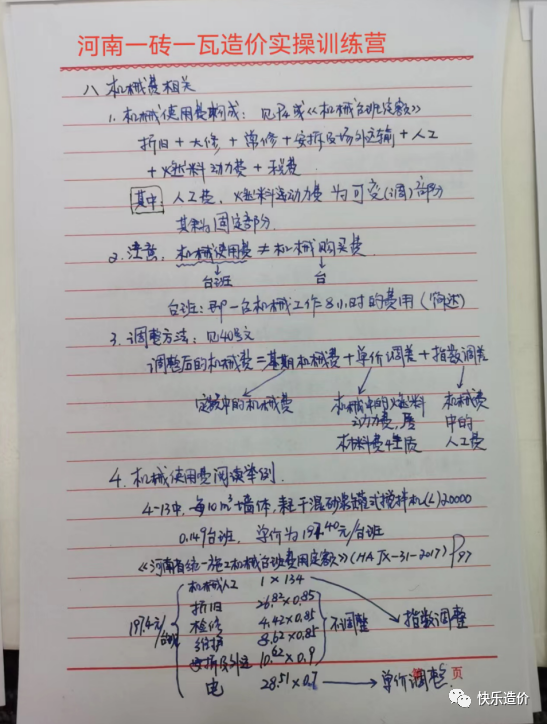 河南一砖一瓦造价实操训练营
八、机械费相关
1. 机械使用费构成：见P4或《机械台班定额》
折旧+大修+常修+安拆及场外运输+人工
+燃料动力费+税费
其中 人工费，燃料动力费为可变(调)部分
其余为固定部分.
2. 注意：机械使用费≠机械购买费
台班 台
台班：即一台机械工作8小时的费用
3. 调整方法：见40号文
调整后的机械费=基期机械费+单价调差+指数调差
定额中的机械费 机械中的燃料 机械费
动力费，属 中的
材料费性质 人工费
4. 机械使用费阅读举例.
4-13中，每10m³墙体，耗干混砂浆罐式搅拌机(L)20000
0.149台班，单价为197.40元/台班
《河南省统一施工机械台班费用定额》(HA JX-31-2017) P97
机械人工 1×134
折旧 26.82×0.85
197.4元/台班 检修 4.42×0.85 不调整 指数调整
维护 8.62×0.85
安拆及外运 10.62×0.9
电 28.51×0.7 单价调整
第 页
快乐造价